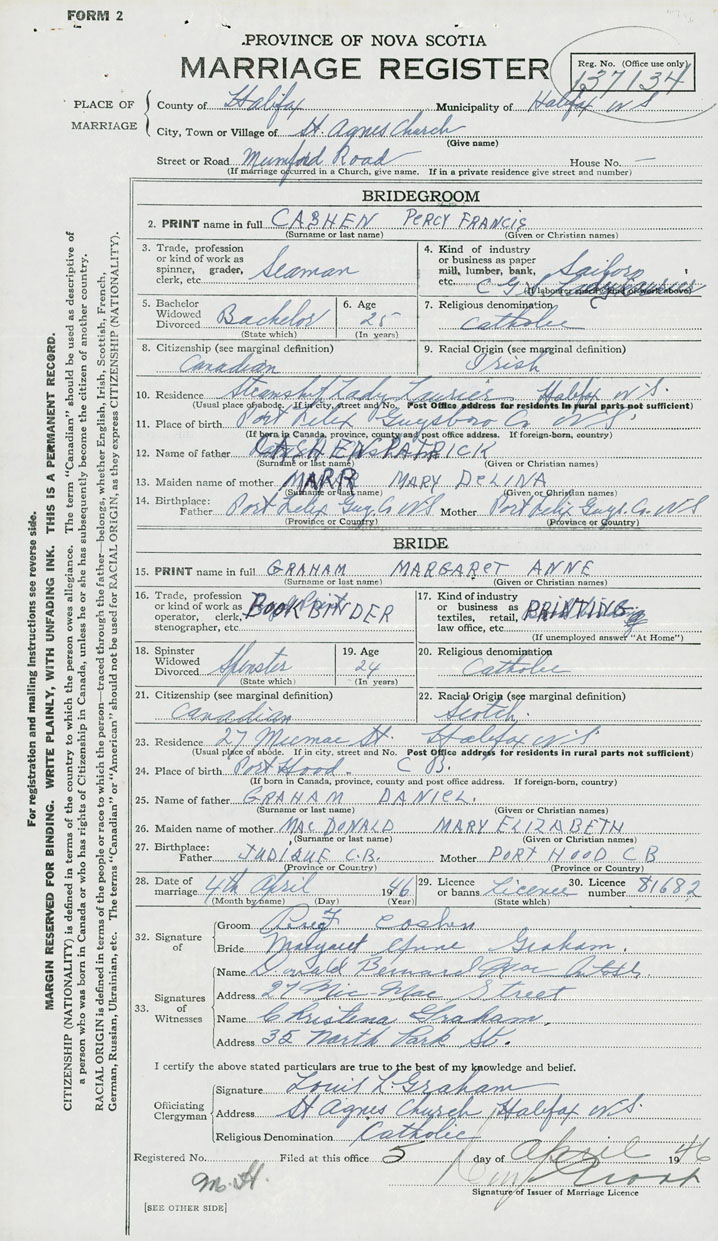 FORM 2
PROVINCE OF NOVA SCOTIA
MARRIAGE REGISTER
Reg. No. (Office use only)
137134
PLACE OF MARRIAGE
County of Halifax Municipality of Halifax N S
City, Town or Village of St. Agnes Church
(Give name)
Street or Road Mumford Road House No. —
(If marriage occurred in a Church, give name. If in a private residence give street and number)
BRIDEGROOM
2. PRINT name in full CASHEN PERCY FRANCIS
(Surname or last name) (Given or Christian names)
3. Trade, profession or kind of work as spinner, grader, clerk, etc. Seaman
4. Kind of industry or business as paper mill, lumber, bank, etc. C G S
(If labourer specify kind of work above)
5. Bachelor Widowed Divorced Bachelor
(State which)
6. Age 25
(In years)
7. Religious denomination Catholic
8. Citizenship (see marginal definition) Canadian
9. Racial Origin (see marginal definition) Irish
10. Residence Steamship Lady Laurier Halifax N S.
(Usual place of abode. If in city, street and No. Post Office address for residents in rural parts not sufficient)
11. Place of birth Port Felix Guysboro Co N S.
(If born in Canada, province, county and post office address. If foreign-born, country)
12. Name of father CASHEN PATRICK
(Surname or last name) (Given or Christian names)
13. Maiden name of mother MARR MARY DELINA
(Surname or last name) (Given or Christian names)
14. Birthplace: Father Port Felix Guy. Co N S Mother Port Felix Guys. Co. N S
(Province or Country) (Province or Country)
BRIDE
15. PRINT name in full GRAHAM MARGARET ANNE
(Surname or last name) (Given or Christian names)
16. Trade, profession or kind of work as operator, clerk, stenographer, etc. BOOKBINDER
17. Kind of industry or business as textiles, retail, law office, etc. PRINTING
(If unemployed answer "At Home")
18. Spinster Widowed Divorced Spinster
(State which)
19. Age 24
(In years)
20. Religious denomination Catholic
21. Citizenship (see marginal definition) Canadian
22. Racial Origin (see marginal definition) Scotch.
23. Residence 27 Micmac St. Halifax N S.
(Usual place of abode. If in city, street and No. Post Office address for residents in rural parts not sufficient)
24. Place of birth Port Hood C B.
(If born in Canada, province, county and post office address. If foreign-born, country)
25. Name of father GRAHAM DANIEL.
(Surname or last name) (Given or Christian names)
26. Maiden name of mother MACDONALD MARY ELIZABETH
(Surname or last name) (Given or Christian names)
27. Birthplace: Father JUDIQUE C.B. Mother PORT HOOD C B
(Province or Country) (Province or Country)
28. Date of marriage 4th April 1946
(Month by name) (Day) (Year)
29. Licence or banns Licence
(State which)
30. Licence number 81682
32. Signature of
Groom Percy F Cashen
Bride Margaret Anne Graham.
33. Signatures of Witnesses
Name Donald Bernard Mac
Address 27 Mic-Mac Street
Name Christena Graham.
Address 35 North Park St.
I certify the above stated particulars are true to the best of my knowledge and belief.
Officiating Clergyman
Signature Louis L. Graham
Address St Agnes Church, Halifax N S.
Religious Denomination Catholic
Registered No. Filed at this office 5 day of April 1946
M. H.
Signature of Issuer of Marriage Licence
[SEE OTHER SIDE]
For registration and mailing instructions see reverse side.
MARGIN RESERVED FOR BINDING. WRITE PLAINLY, WITH UNFADING INK. THIS IS A PERMANENT RECORD.
CITIZENSHIP (NATIONALITY) is defined in terms of the country to which the person owes allegiance. The term "Canadian" should be used as descriptive of
a person who was born in Canada or who has rights of Citizenship in Canada, unless he or she has subsequently become the citizen of another country.
RACIAL ORIGIN is defined in terms of the people or race to which the person—traced through the father—belongs, whether English, Irish, Scottish, French,
German, Russian, Ukrainian, etc. The terms "Canadian" or "American" should not be used for RACIAL ORIGIN, as they express CITIZENSHIP (NATIONALITY).